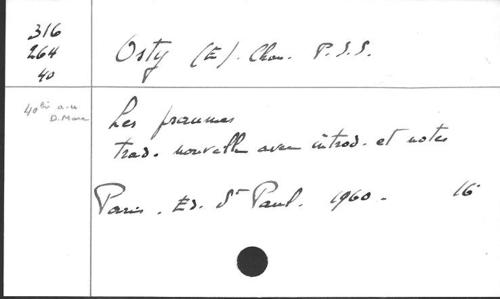 316
264
40
Osty (E). Chan. P.S.S.
40 bis a.u
D. Marc
Les psaumes
trad. nouvelle avec introd. et notes
Paris. Ed. St Paul. 1960. 16°